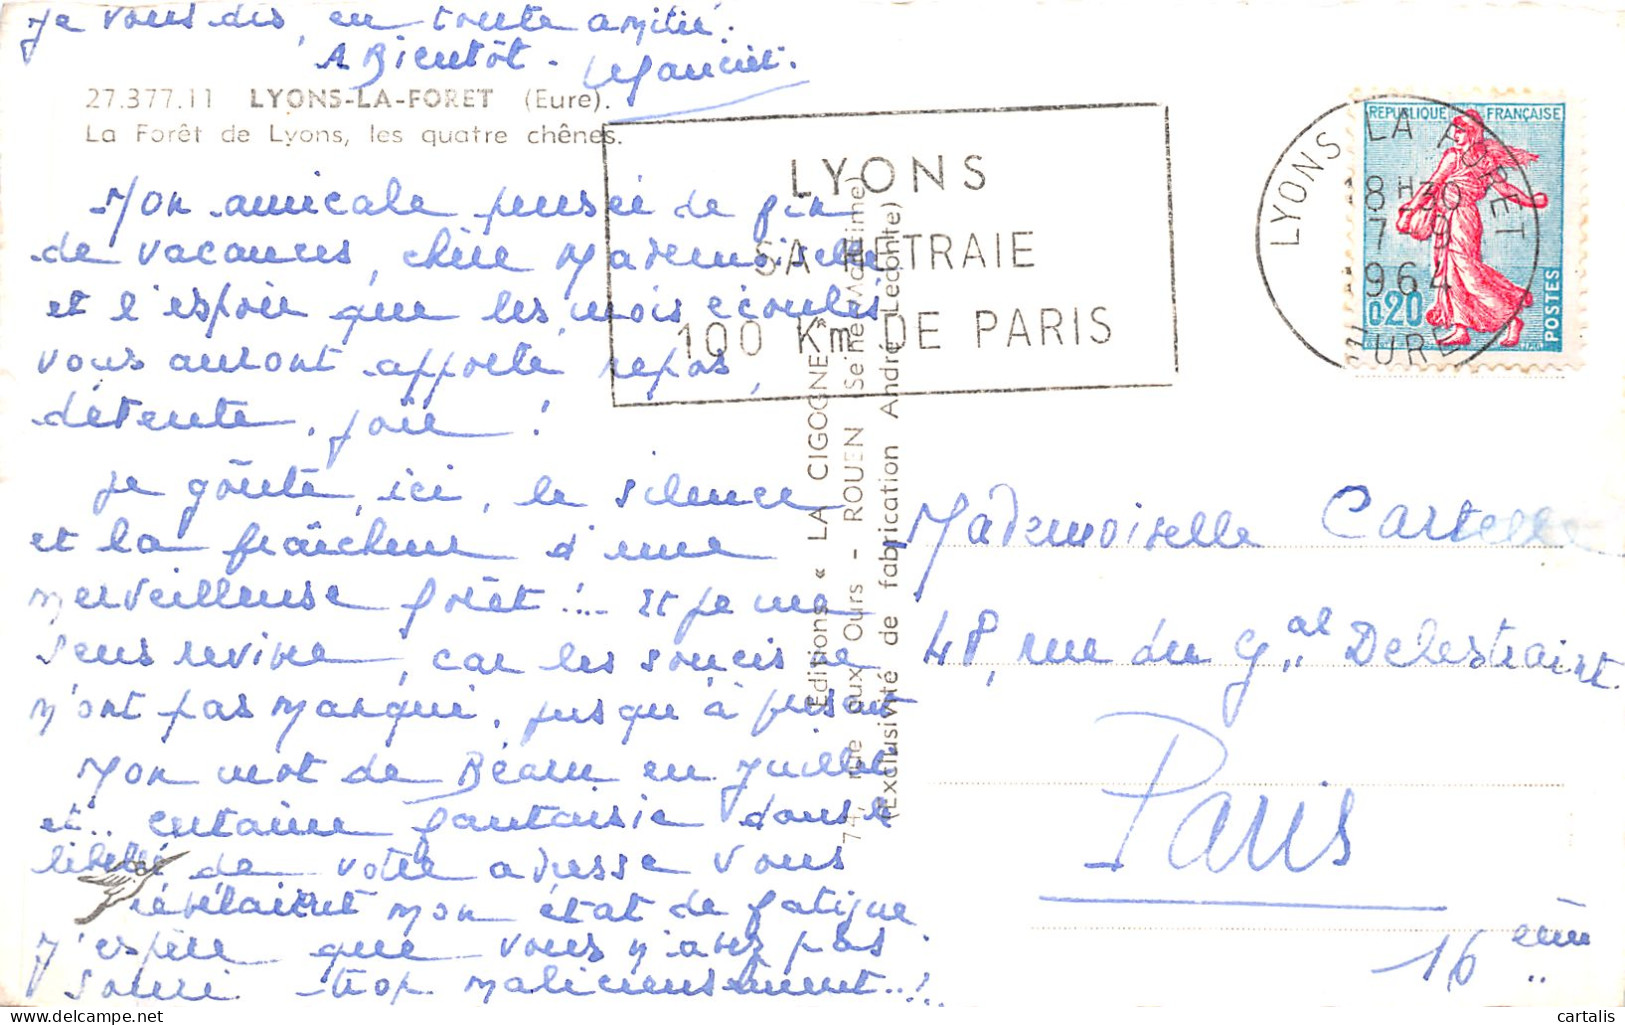 Je vous dis, en toute amitié.
A Bientôt -
27.377.11 LYONS-LA-FORET (Eure).
La Forêt de Lyons, les quatre chênes.
Mon amicale pensée de fin
de vacances, chère Mademoiselle
et l'espoir que les mois écoulés
vous auront apporté repos,
détente, joie !
Je goûte, ici, le silence
et la fraîcheur d'une
merveilleuse forêt !... Et je me
sens revivre, car les soucis ne
m'ont pas manqué, jusqu'à présent
Mon mot de Béarn en Juillet
et.. certaine fantaisie dans le
libellé de votre adresse vous
révélaient mon état de fatigue
J'espère que vous n'avez pas
souri trop malicieusement..!
Editions « LA CIGOGNE »
74, rue aux Ours - ROUEN (Seine Maritime)
(Exclusivité de fabrication André Leconte)
LYONS
SA HETRAIE
100 Km DE PARIS
LYONS LA FORET
18 H30
7-9
1964
EURE
REPUBLIQUE FRANÇAISE
0,20
POSTES
Mademoiselle Cartelle
48, rue du Gal Delestraint
Paris
16 ème
www.cartalis.com